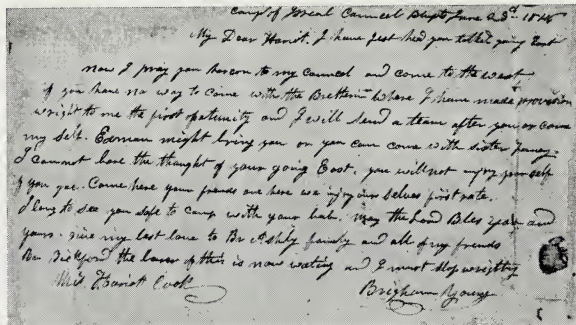 Camp of Isreal Councel Blufs June 23d 1846
My Dear Hariot. I have just had you talked going East
now I pray you harcon to my councel and come to the west
if you have no way to come with the Bretherin where I have made provision
wright to me the first opatunity and I will send a team after you or come
my self. might bring you or you can come with sister Young.
I cannot bare the thought of your going East, you will not injoy yourself
if you goe. Come here your frends are here we injoy our selves first rate.
I long to see you safe to camp with your babe. may the Lord Bles you and
yours. give my best love to Br Ashby family and all of my frends
Br Bickford the barer of this is now wating and I must stop wrighting
Mis Hariot Cook
Brigham Young